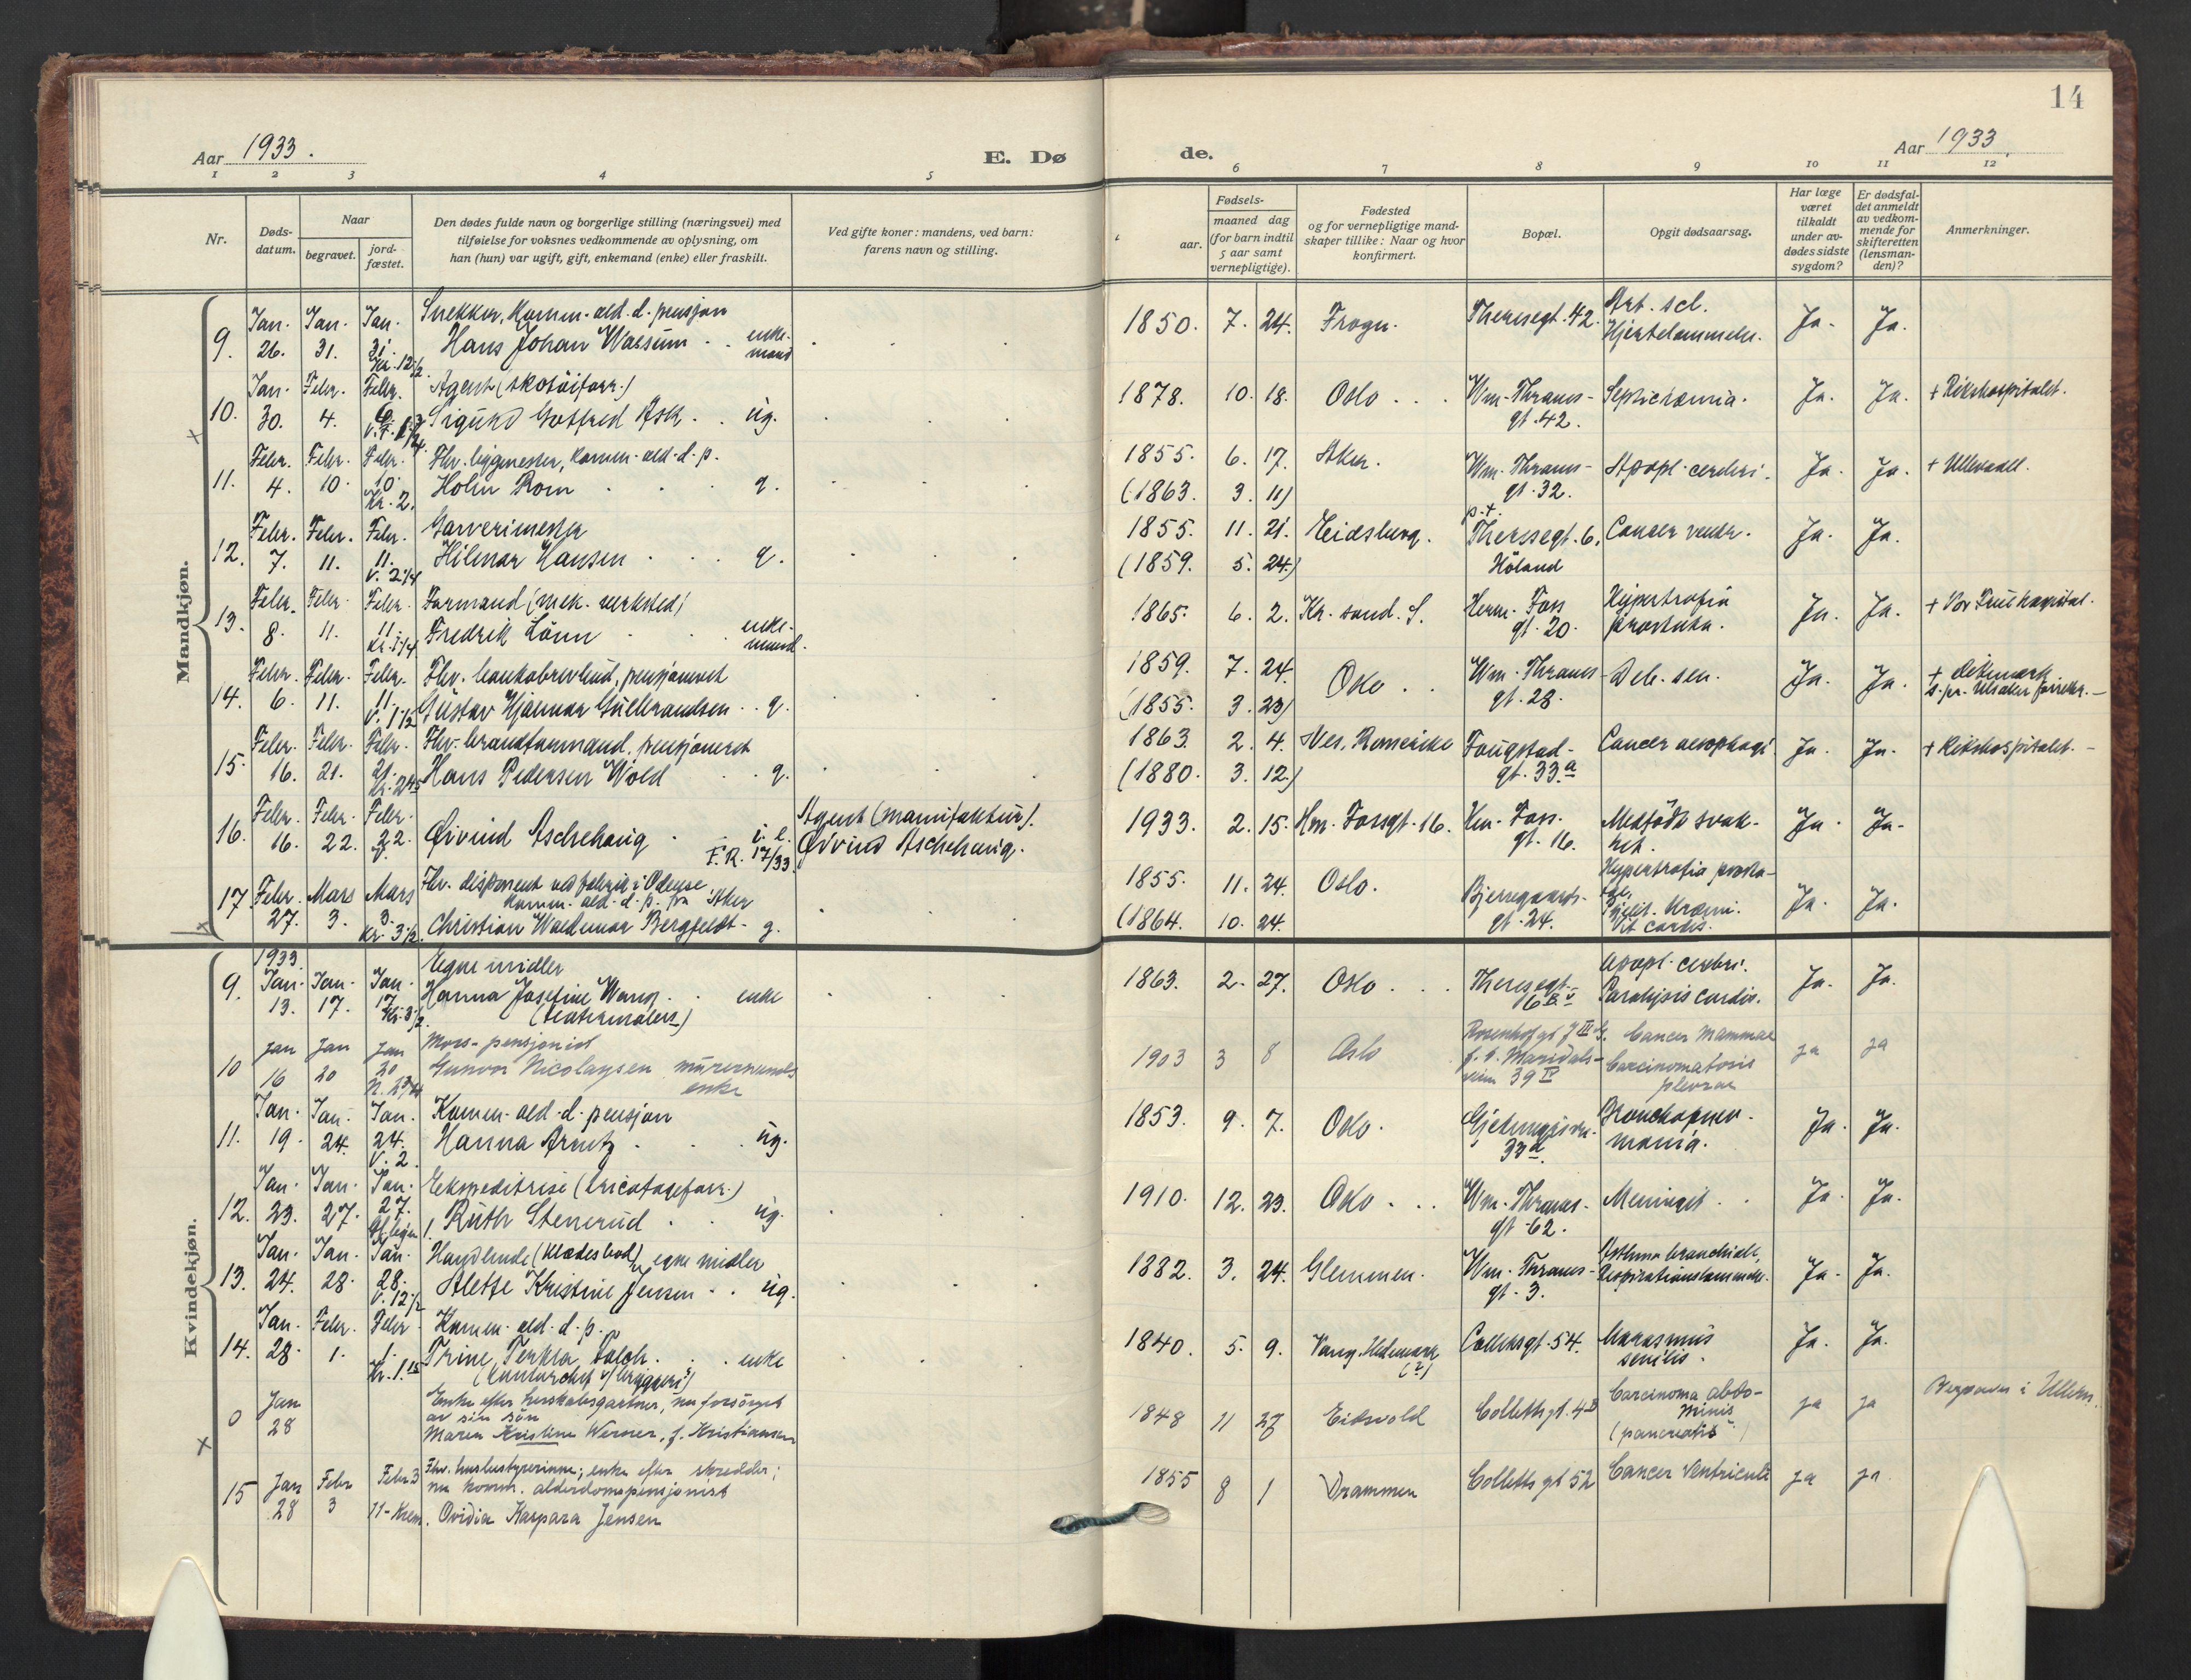 14
Aar 1933.
E. Dø
de.
Aar 1933.
1 2 3 4 5 6 7 8 9 10 11 12
Nr.
Døds-
datum.
Naar
begravet.
jord-
fæstet.
Den dødes fulde navn og borgerlige stilling (næringsvei) med
tilføielse for voksnes vedkommende av oplysning, om
han (hun) var ugift, gift, enkemand (enke) eller fraskilt.
Ved gifte koner: mandens, ved barn:
farens navn og stilling.
Fødsels-
aar.
maaned dag
(for barn indtil
5 aar samt
vernepligtige).
Fødested
og for vernepligtige mand-
skaper tillike: Naar og hvor
konfirmert.
Bopæl.
Opgit dødsaarsag.
Har læge
været
tilkaldt
under av-
dødes sidste
sygdom?
Er dødsfal-
det anmeldt
av vedkom-
mende for
skifteretten
(lensman-
den)?
Anmerkninger.
Mandkjøn.
9. Jan. 26. Jan. 31. Jan. 31. Kr. 12 1/2
Snekker, komm. ald. d. pensjon
Hans Johan Waesum enke-
mand
1850. 7. 24. Frogn. Theresegt. 42. Art. scl.
Hjertelammelse. Ja. Ja.
10. Jan. 30. Febr. 4. Febr.
Agent (skotöiforr.)
Sigurd Gotfred Ask. ug.
1878. 10. 18. Oslo Wm. Thranes-
gt. 42. Septichæmia. Ja. Ja. + Rikshospitalet.
11. Febr. 4. Febr. 10. Febr. 10. Kr. 2.
Fhv. byggmester, komm. ald. d. p.
Holm Rom g.
1855. 6. 17. Aker. Wm. Thranes-
gt. 32. Apopl. cerebri. Ja. Ja. + Ullevaal.
(1863. 3. 11)
12. Febr. 7. Febr. 11. Febr. 11. V. 2 1/4
Garverimester
Hilmar Hansen g.
1855. 11. 21. Eidsberg. p.t.
Theresegt. 6. Cancer ventr. Ja. Ja.
(1859. 5. 24.) Höland
13. Febr. 8. Febr. 11. Febr. 11. Kr. 1 1/4
Formand (mek. verksted)
Fredrik Lönn enke-
mand.
1865. 6. 2. Kr. sand. S. Herm. Foss
gt. 20. Hypertrofia
prostata. Ja. Ja. + Vor Frue hospital.
14. Febr. 6. Febr. 11. Febr. 11. V. 1 1/2
Fhv. bankobrevbud, pensjonert
Gustav Hjalmar Gulbrandsen g.
1859. 7. 24. Oslo Wm. Thranes-
gt. 28. Deb. sen. Ja. Ja.
(1855. 3. 23)
15. Febr. 16. Febr. 21. Febr. 21.
Fhv. brandformand, pensjonert
Hans Pedersen Wold g.
1863. 2. 4. Nes. Romerike Fougstad-
gt. 33.a Cancer aesophagi Ja. Ja. + Rikshospitalet.
(1880. 3. 12.)
16. Febr. 16. Febr. 22. Febr. 22. V.
Øivind Aschehaug F.R. 17/33.
Agent (manufaktur).
Øivind Aschehaug.
1933. 2. 15. Hm. Fossgt. 16. Hm. Foss-
gt. 16. Medfödt svak-
het. Ja. Ja.
17 Febr. 27. Mars 3. Mars 3. Kr. 3 1/2.
Fhv. disponent ved fabrik i Odense
komm. ald. d. p. fra Aker
Christian Waldemar Bergfeldt g.
1855. 11. 24. Oslo. Bjerregaards-
gt. 24. Hypertrofia prosta-
tae,
Pyelit. Uræmi.
Vit. cordis. Ja. Ja.
(1864. 10. 24.
Kvindekjøn.
1933.
9. Jan. 13. Jan. 17. Jan. 17.
Egne midler
Hanna Josefine Wang enke
(teatermalers)
1863. 2. 27. Oslo Theresegt.
16 B. V Apopl. cerebri.
Paralysis cordis. Ja. Ja.
10 Jan 16 Jan 20 Jan 20
Mors-pensjonist
Gunvor Nicolaysen murermands
enke
1903 3 8 Oslo Rosenhofgt 7 III
f. t. Maridals-
veien 39 IV Cancer mammae
Carcinomatosis
pleurae ja ja
11. Jan. 19. Jan. 24. Jan. 24. V. 2.
Komm. ald. d. pensjon
Hanna Arntz ug.
1853. 9. 7. Oslo. Gjetemyrsvn.
33 d. Bronchopneu-
monia. Ja. Ja.
12. Jan. 23. Jan. 27. Jan. 27.
Ekspeditrise (tricotageforr.)
Ruth Stenerud ug.
1910. 12. 23. Oslo Wm. Thranes-
gt. 62. Meningit. Ja. Ja.
13. Jan. 24. Jan. 28. Jan. 28. V. 12 1/2
Handlende (klædesbod), egne midler
Alette Kristine Jensen ug.
1882. 3. 24. Glemmen. Wm. Thranes-
gt. 3. Asthma bronchiale,
Respirationslammelse. Ja. Ja.
14. Jan. 28. Febr. 1. Febr. 1. Kr. 1.15
Komm. ald. d. p.
Trine Terkla Falch enke
(kontorchef v/ bryggeri)
1840. 5. 9. Vang. Hedemark
(?) Collettsgt. 54. Marasmus
senilis. Ja. Ja.
0 Jan 28
Enke efter herskabsgartner, nu forsörget
av sin sön
Maren Kristine Werner, f. Kristiansen
1848 11 27 Eidsvold Colletts gt. 4 B Carcinoma abdo-
minis
(pancreatis) ja ja Begraves i Ullern.
15 Jan 28 Febr 3 Febr 3 11-Krem.
Fhv. husbestyrerinne; enke efter skredder;
nu komm. alderdomspensjonist
Ovidia Kaspara Jensen
1855 8 1 Drammen Colletts gt 52 Cancer Ventriculi ja ja